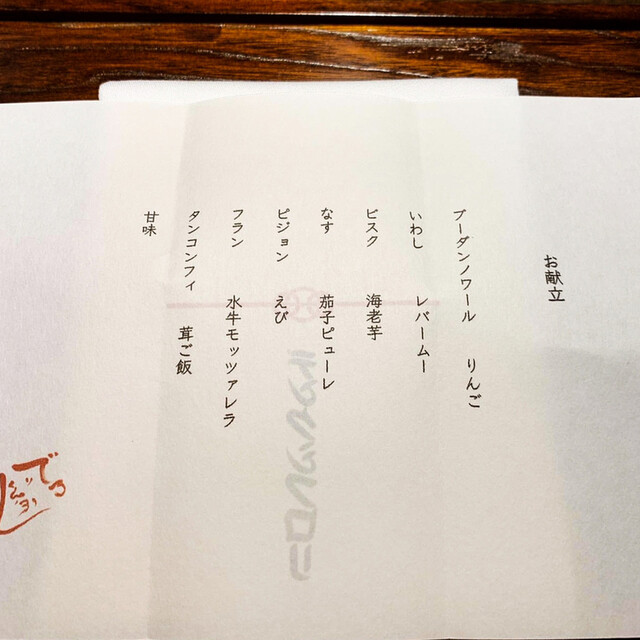 お献立
ブーダンノワール　りんご
いわし　レバームー
ビスク　海老芋
なす　茄子ピューレ
ピジョン　えび
フラン　水牛モッツァレラ
タンコンフィ　茸ご飯
甘味